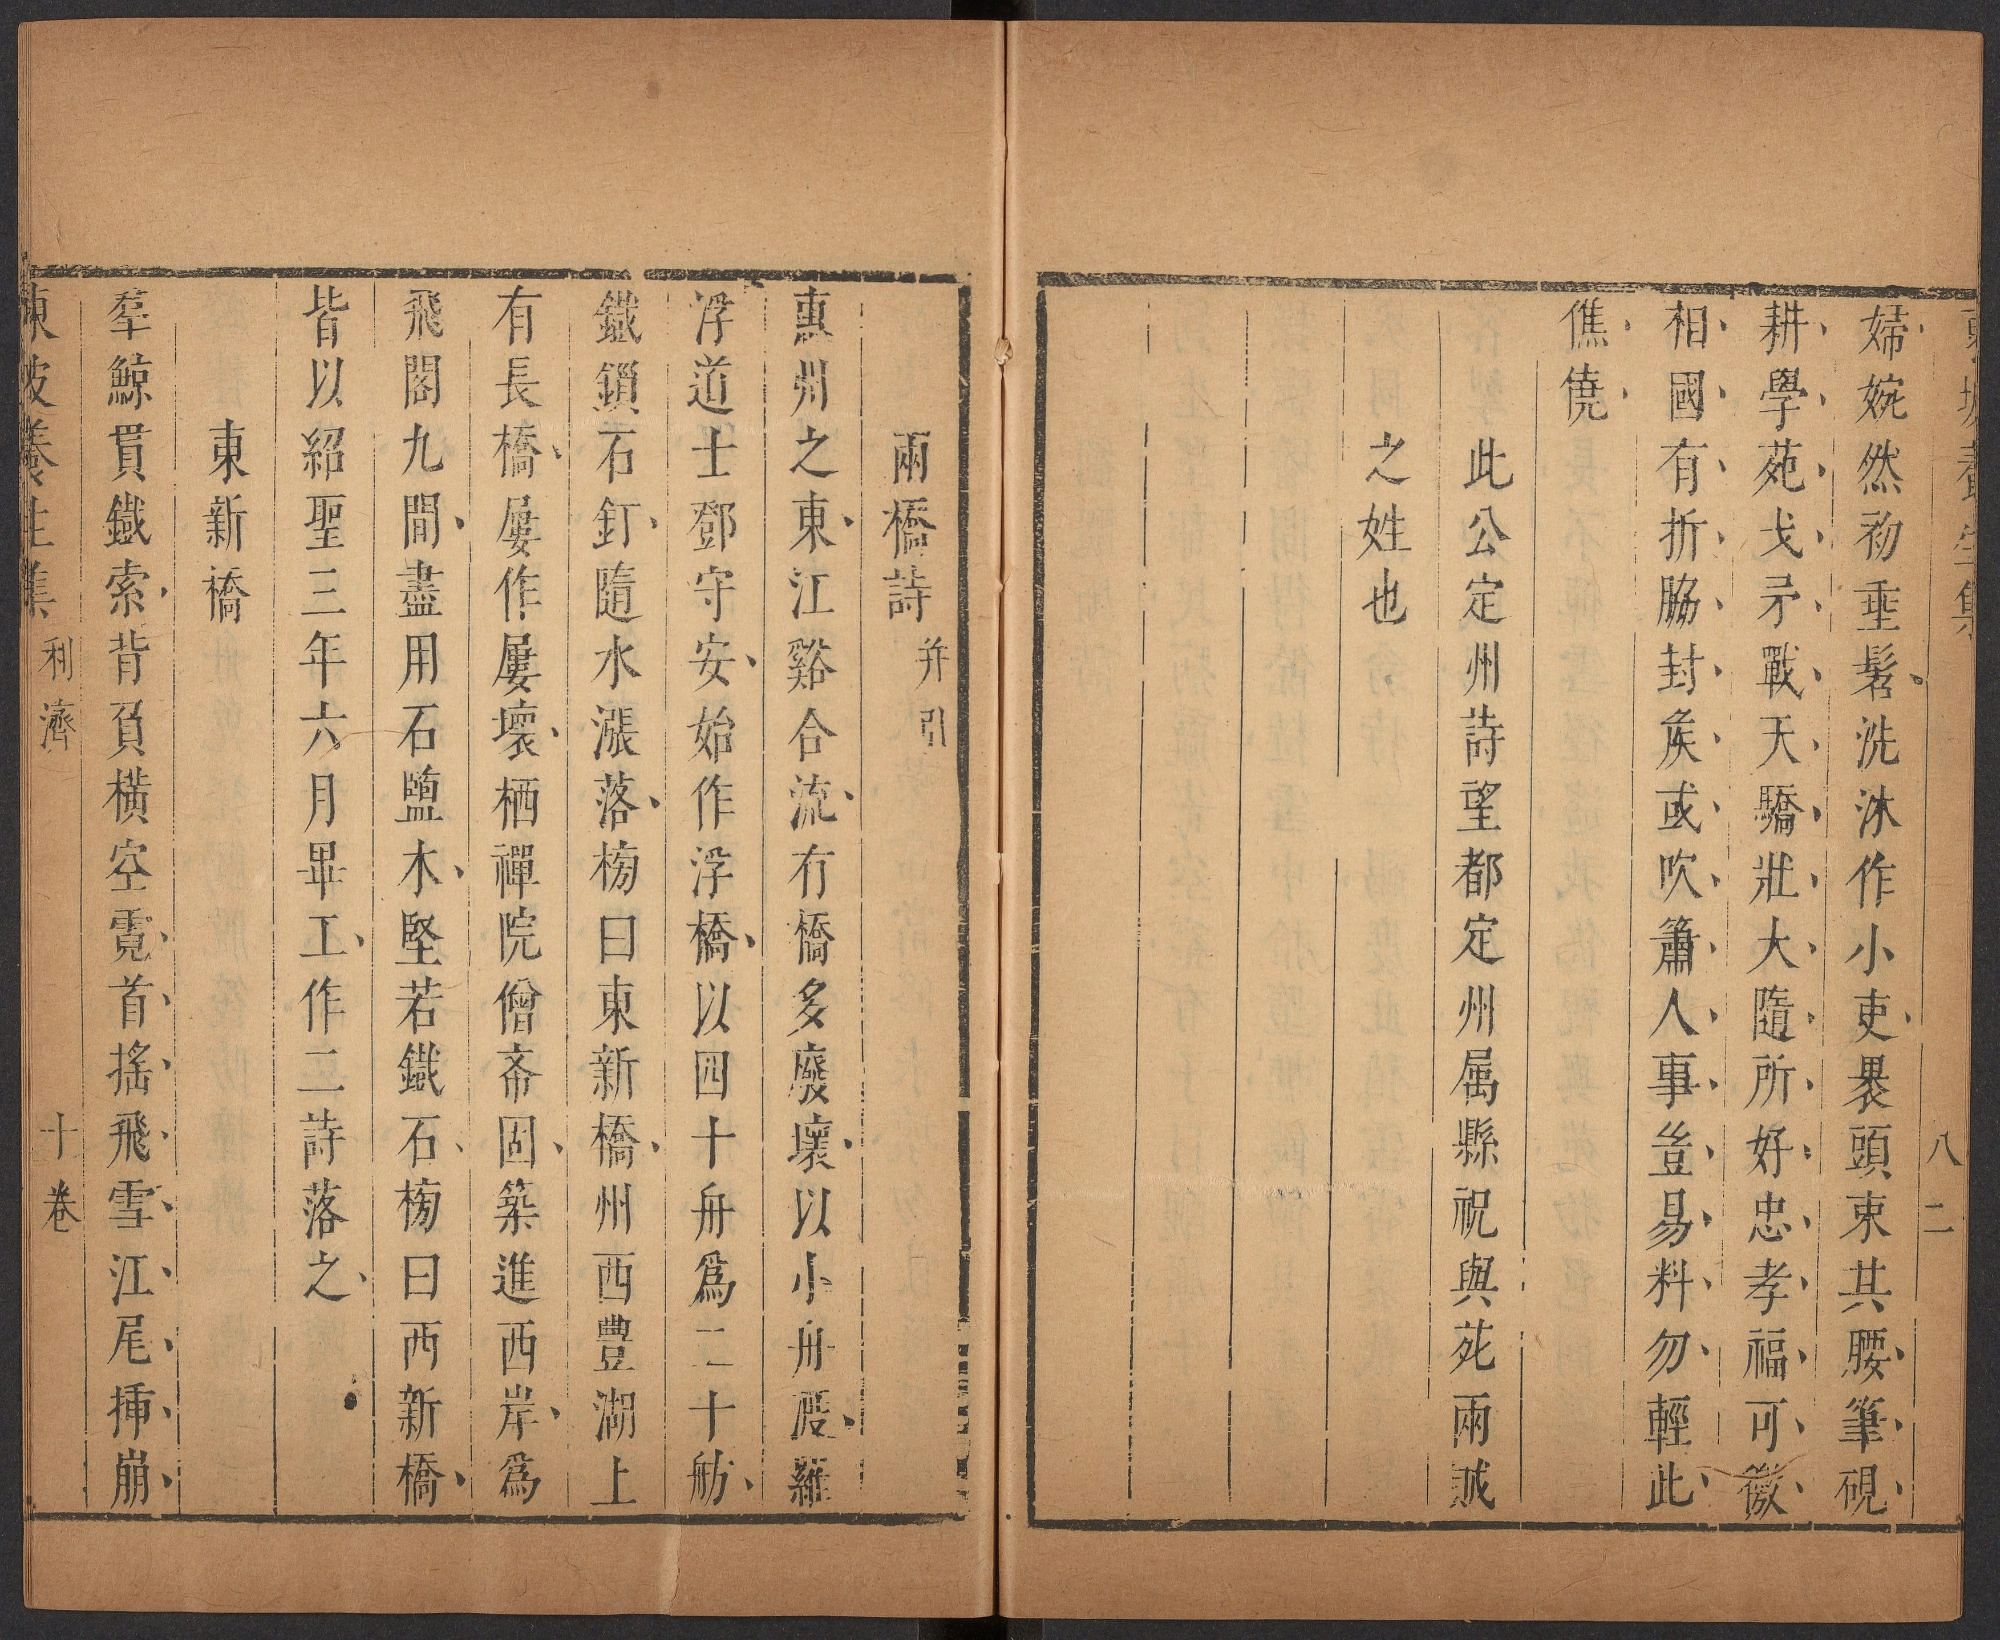 東坡養生集
八二
婦婉然初垂髫洗沐作小吏褁頭束其腰筆硯
耕學苑戈矛戰天驕壯大隨所好忠孝福可徼
相國有折脇封矦或吹簫人事豈易料勿輕此
僬僥
此公定州詩望都定州属縣祝與苑兩誠
之姓也
兩橋詩并引
惠州之東江谿合流有橋多廢壞以小舟渡羅
浮道士鄧守安始作浮橋以四十舟爲二十舫
鐵鎖石釘隨水漲落榜曰東新橋州西豐湖上
有長橋屢作屢壞栖禪院僧希固築進西岸爲
飛閣九間盡用石鹽木堅若鐵石榜曰西新橋
皆以紹聖三年六月畢工作二詩落之
東新橋
羣鯨貫鐵索背負橫空霓首搖飛雪江尾揷崩
東坡養生集
利濟
十卷